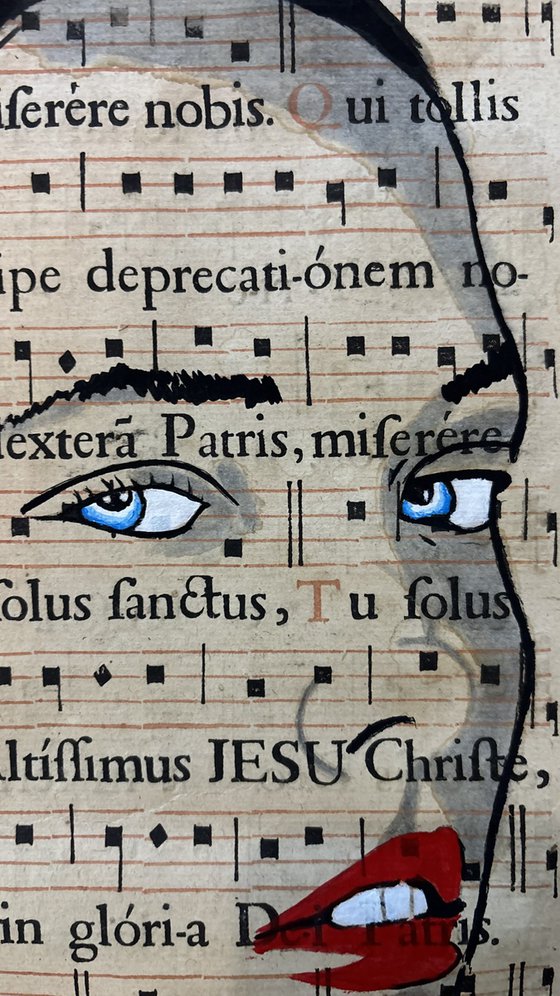 iſerére nobis. Qui tollis
ipe deprecati-ónem no-
dexterã Patris, miſerére
ſolus ſanctus, Tu ſolus
Altíſſimus JESU Chriſte,
in glóri-a Dei Patris.